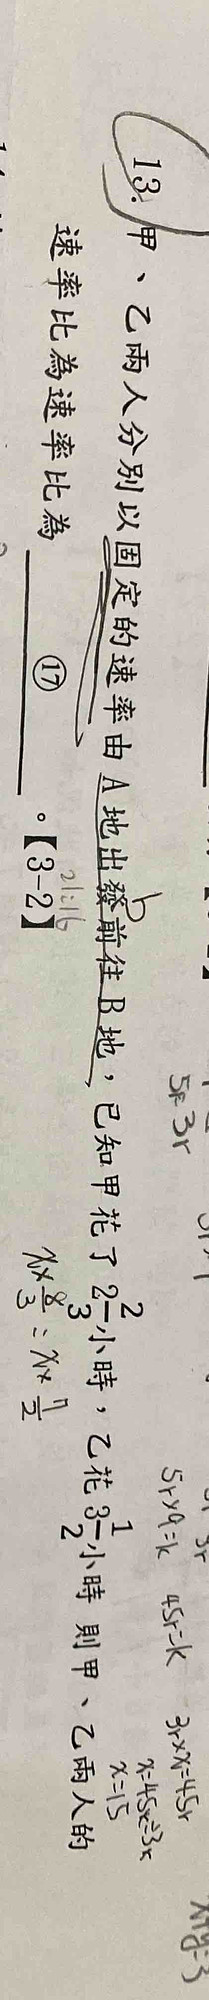 13. 甲、乙兩人分別以固定的速率由A地出發前往B地,已知甲花了2 2/3小時,乙花3 1/2小時 則甲、乙兩人的
速率比為速率比為 ⑰ 。【3-2】
21:16
x×8/3 = x×7/2
5r 3r
5r×9=k 45r=k 3r×x=45r
x=45r÷3r
x=15
x+y=3